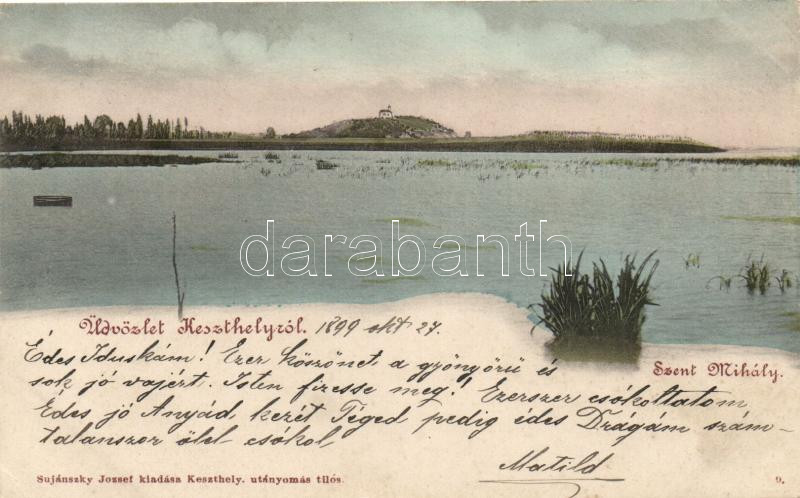 darabanth
Üdvözlet Keszthelyról. 1899 okt 27.
Szent Mihály.
Édes Iduskám! Ezer köszönet a gyönyörü és
sok jó vajért. Isten fizesse meg! Ezerszer csókoltatom
Édes jó Anyád kezét Téged pedig édes Drágám szám-
talanszor ölel csókol
Matild
Sujánszky Jozsef kiadása Keszthely. utányomás tilós.
9.